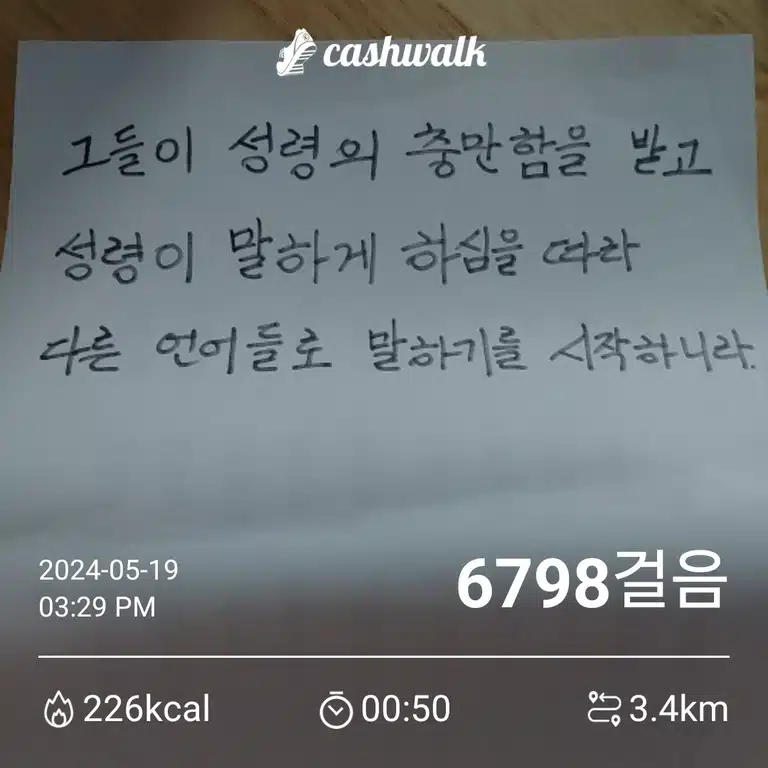 cashwalk
그들이 성령의 충만함을 받고
성령이 말하게 하심을 따라
다른 언어들로 말하기를 시작하니라.
2024-05-19
03:29 PM
6798걸음
226kcal
00:50
3.4km